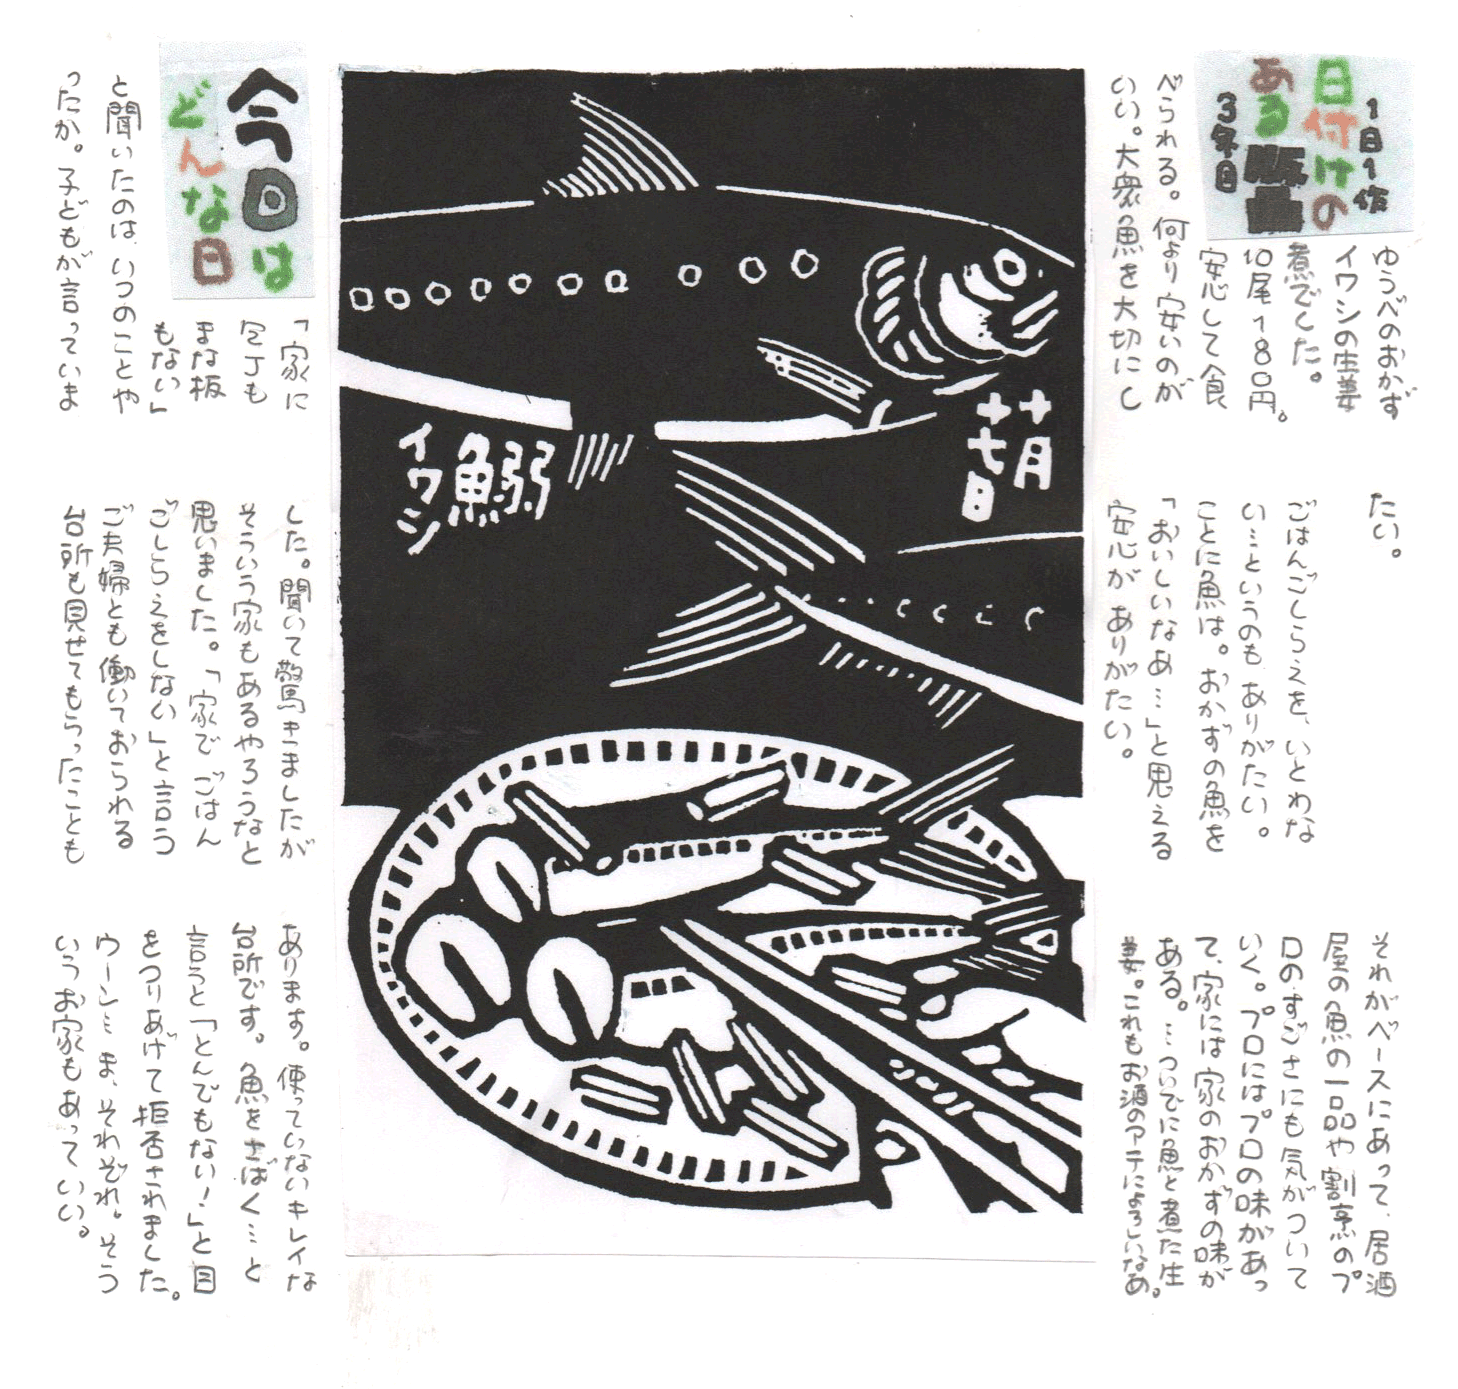 1日1作
日付けの
ある版画
3年目
ゆうべのおかず
イワシの生姜
煮でした。
10尾180円。
安心して食
べられる。何より安いのが
いい。大衆魚を大切にし
たい。
ごはんごしらえを、いとわな
い…というのも、ありがたい。
ことに魚は。おかずの魚を
「おいしいなあ…」と思える
安心が ありがたい。
それがベースにあって、居酒
屋の魚の一品や割烹のプ
ロのすごさにも気がついて
いく。プロにはプロの味があっ
て、家には家のおかずの味が
ある。…ついでに魚と煮た生
姜。これもお酒のアテによろしいなあ。
十月
十七日
鰯
イワシ
今日は
どんな日
「家に
包丁も
まな板
もない」
と聞いたのは、いつのことや
ったか。子どもが言っていま
した。聞いて驚きましたが
そういう家もあるやろうなと
思いました。「家でごはん
ごしらえをしない」と言う
ご夫婦とも働いておられる
台所も見せてもらったことも
あります。使っていないキレイな
台所です。魚をさばく…と
言うと「とんでもない!」と目
をつりあげて拒否されました。
ウーン… ま、それぞれ。そう
いうお家もあっていい。